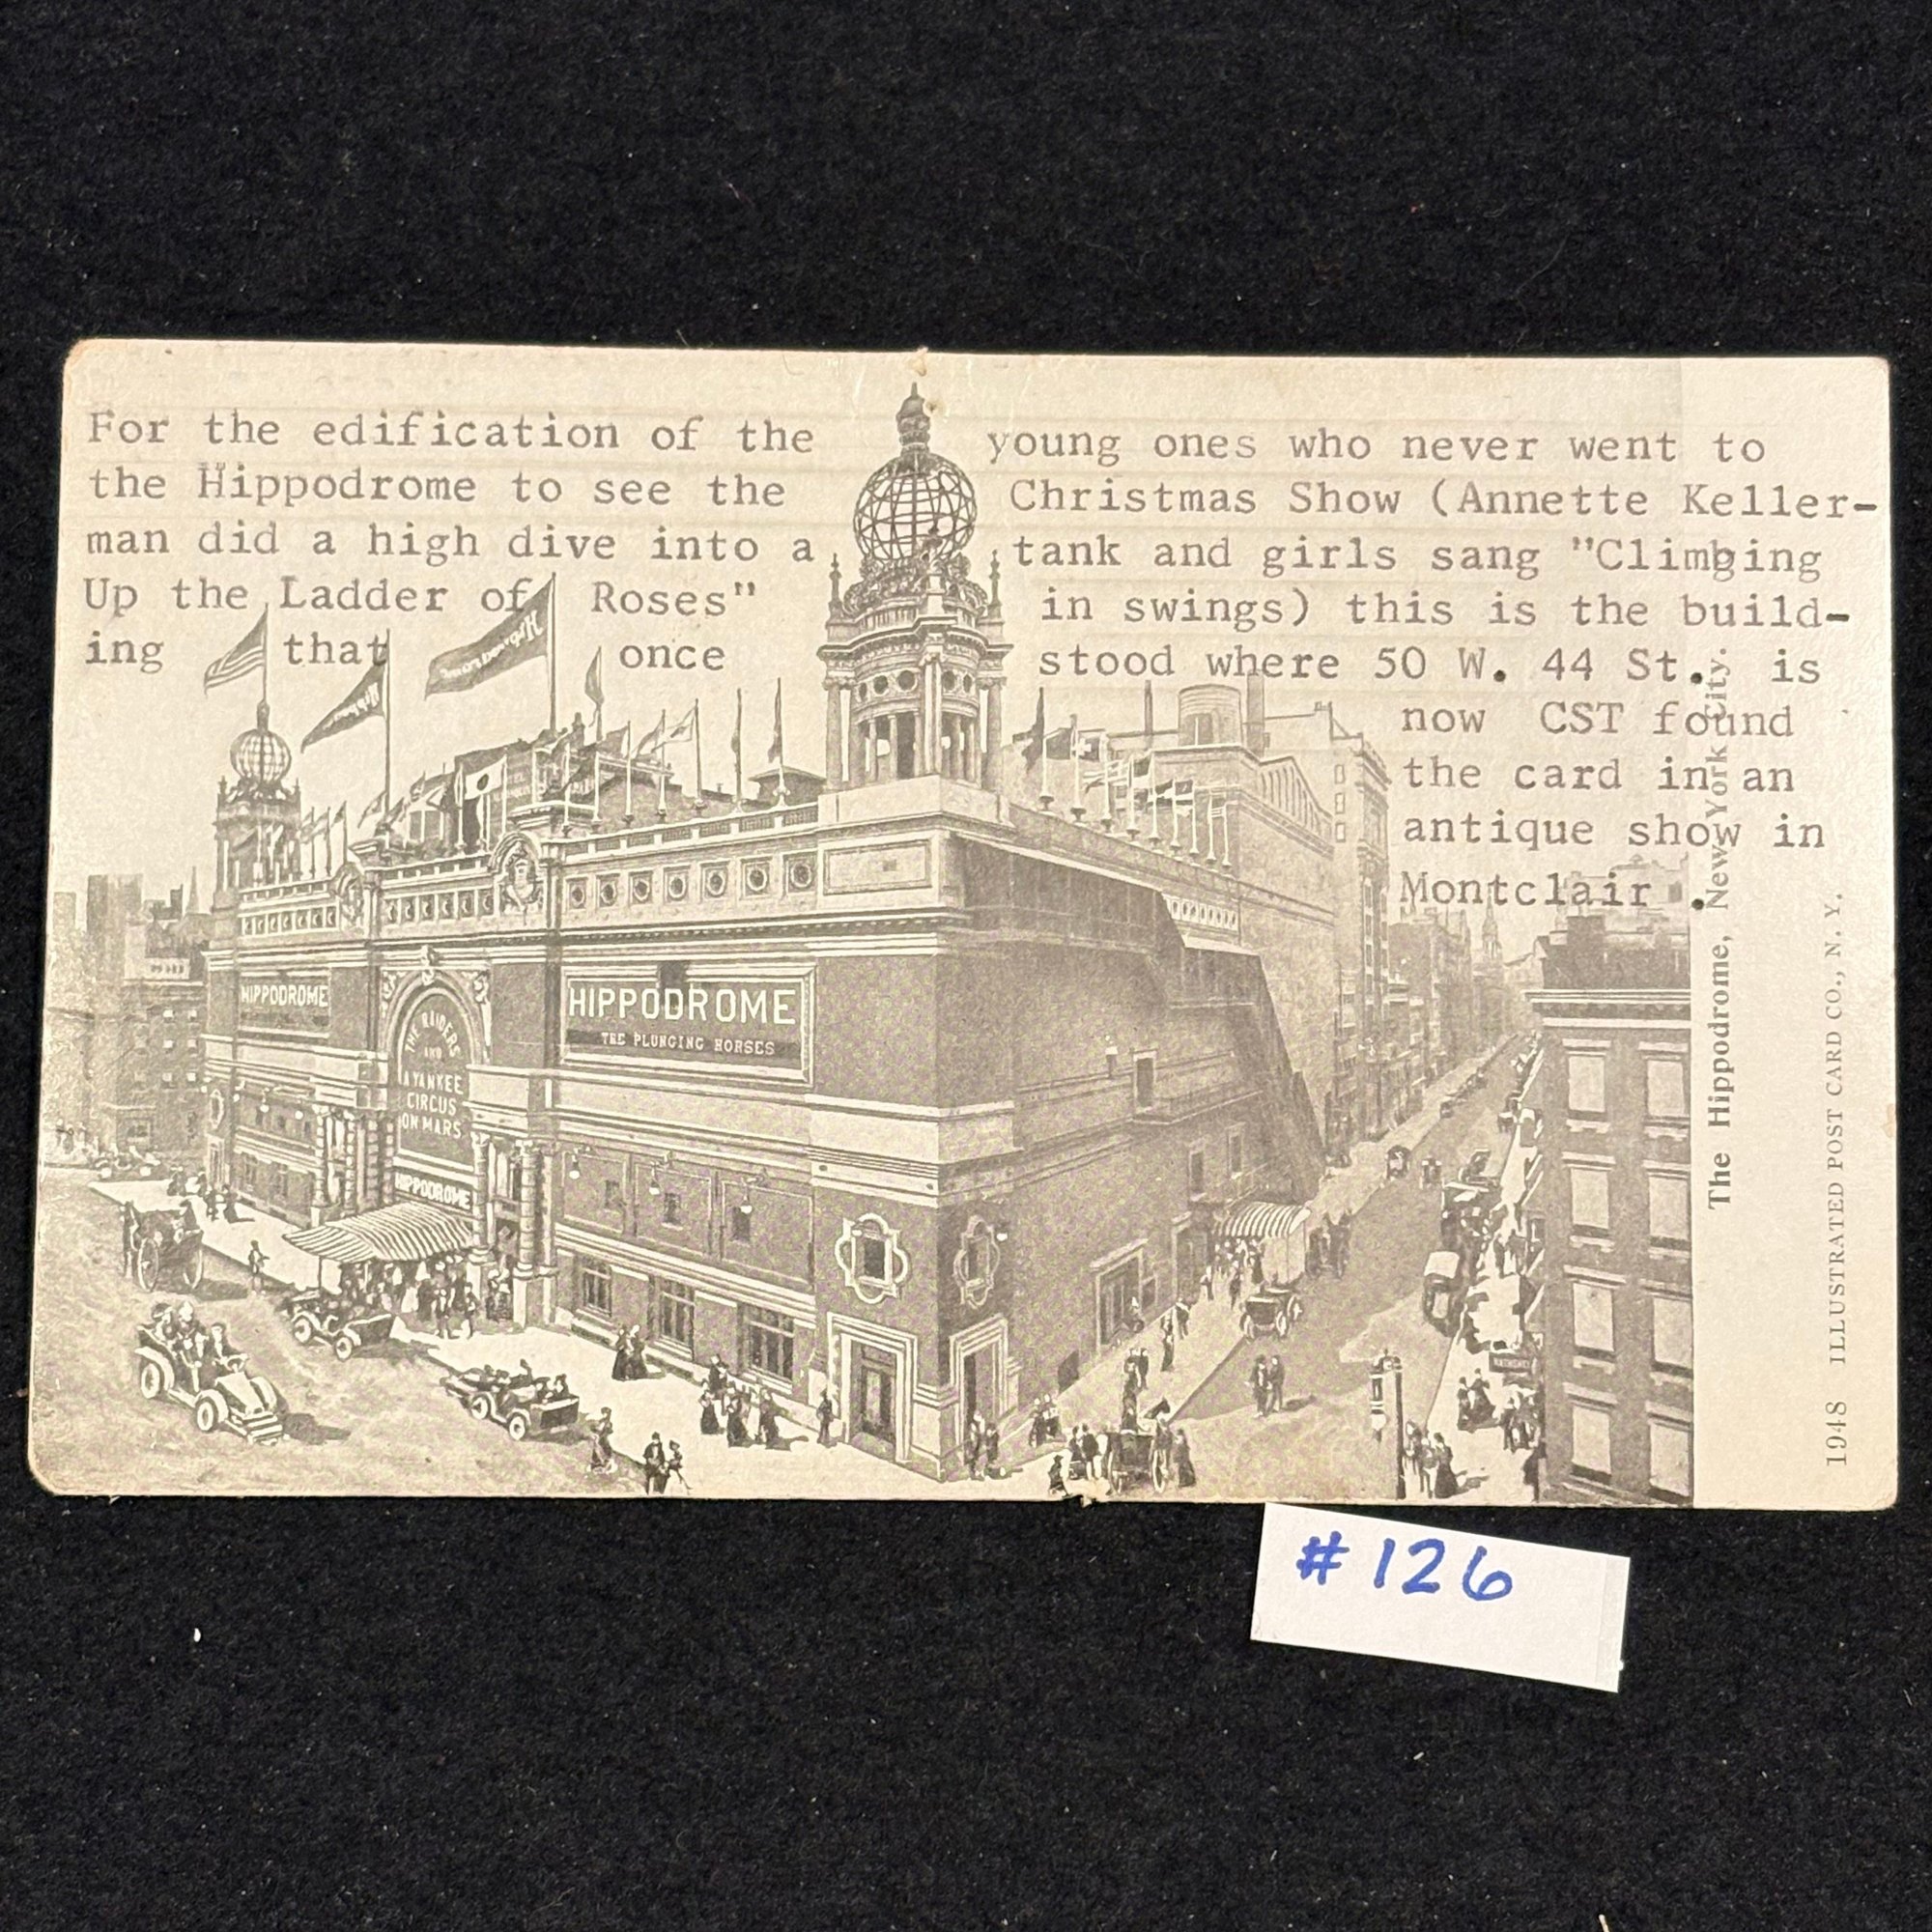 For the edification of the young ones who never went to
the Hippodrome to see the Christmas Show (Annette Keller-
man did a high dive into a tank and girls sang "Climbing
Up the Ladder of Roses" in swings) this is the build-
ing that once stood where 50 W. 44 St. is
now CST found
the card in an
antique show in
Montclair .
HIPPODROME
HIPPODROME
THE PLUNGING HORSES
THE RAIDERS
AND
A YANKEE
CIRCUS
ON MARS
HIPPODROME
The Hippodrome, New York City.
1948 ILLUSTRATED POST CARD CO., N. Y.
#126